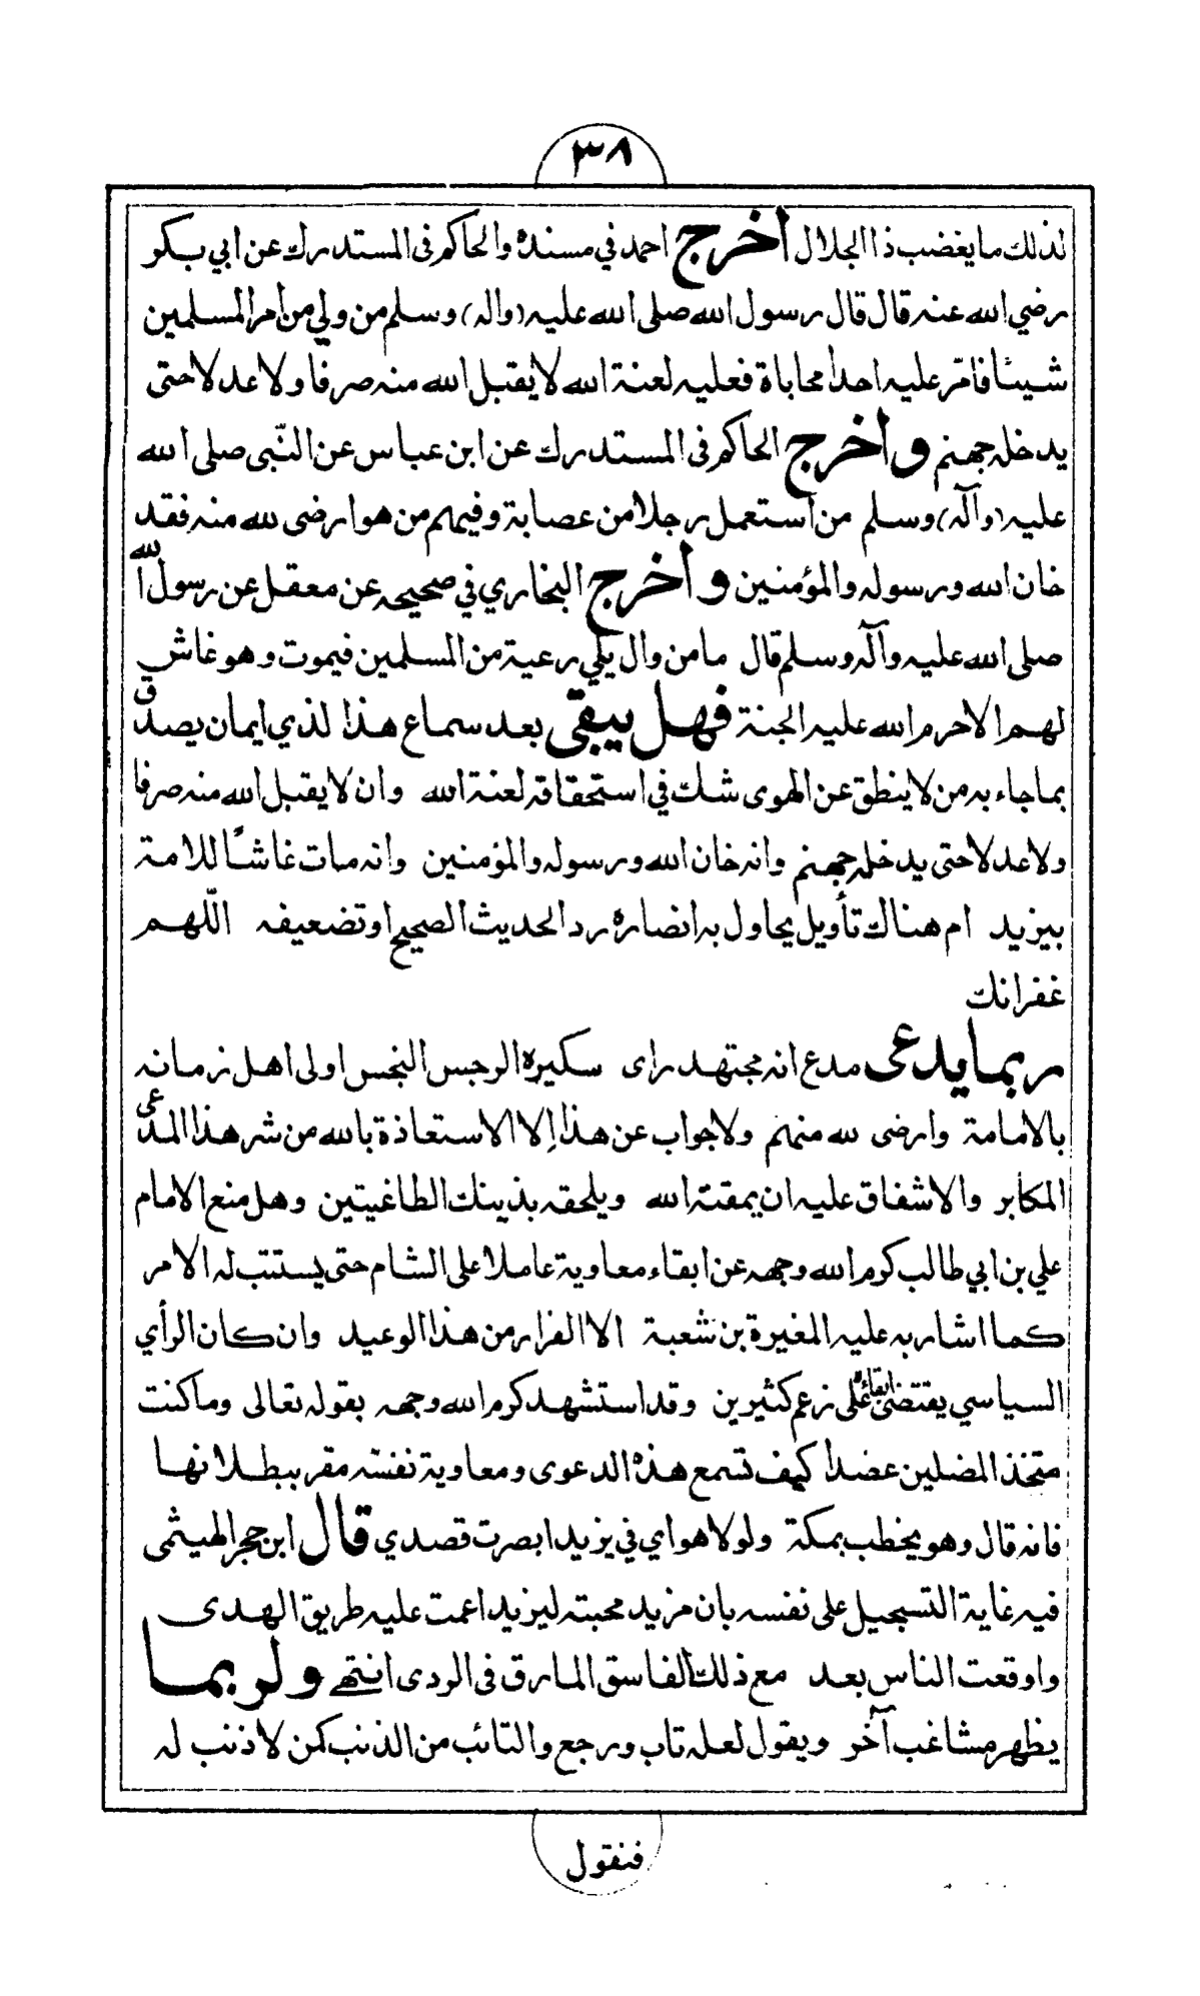 ٣٨
لذلك ما يغضب ذا الجلال أخرج احمد في مسنده والحاكم فى المستدرك عن ابي بكر
رضي الله عنه قال قال رسول الله صلى الله عليه (واله) وسلم من ولي من أمر المسلمين
شيئا فامّر عليه احداً محاباة فعليه لعنة الله لا يقبل الله منه صرفا ولا عدلا حتى
يدخله جهنم وأخرج الحاكم فى المستدرك عن ابن عباس عن النّبى صلى الله
عليه (وآله) وسلم من استعمل رجلا من عصابة وفيهم من هو ارضى لله منه فقد
خان الله ورسوله والمؤمنين وأخرج البخاري في صحيحه عن معقل عن رسول الله
صلى الله عليه وآله وسلم قال ما من وال يلي رعية من المسلمين فيموت وهو غاش
لهم الا حرم الله عليه الجنة فهل يبقى بعد سماع هذا لذي ايمان يصدّق
بما جاء به من لا ينطق عن الهوى شك في استحقاقه لعنة الله وان لا يقبل الله منه صرفا
ولا عدلا حتى يدخله جهنم وانه خان الله ورسوله والمؤمنين وانه مات غاشًا للامة
بيزيد ام هناك تأويل يحاول به انصاره رد الحديث الصحيح او تضعيفه اللّهم
غفرانك
ربما يدعى مدع انه مجتهد راى سكيره الرجس النجس اولى اهل زمانه
بالامامة وارضى لله منهم ولا جواب عن هذا إلا الاستعاذة بالله من شر هذا المدّعى
المكابر والاشفاق عليه ان يمقته الله ويلحقه بذينك الطاغيتين وهل منع الامام
علي بن ابي طالب كرم الله وجهه عن ابقاء معاوية عاملا على الشام حتى يستتب له الامر
كما اشار به عليه المغيرة بن شعبة الا الفرار من هذا الوعيد وان كان الرأي
السياسي يقتضى ابقائه على زعم كثيرين وقد استشهد كرم الله وجهه بقوله تعالى وما كنت
متخذ المضلين عضداً كيف تسمع هذه الدعوى ومعاوية نفسه مقر ببطلانها
فانه قال وهو يخطب بمكة ولولا هواي في يزيد ابصرت قصدي قال ابن حجر الهيثمى
فيه غاية التسجيل على نفسه بان مزيد محبته ليزيد اعمت عليه طريق الهدى
واوقعت الناس بعد مع ذلك الفاسق المارق فى الردى انتهى ولربما
يظهر مشاغب آخر ويقول لعله تاب ورجع والتائب من الذنب كمن لا ذنب له
فنقول